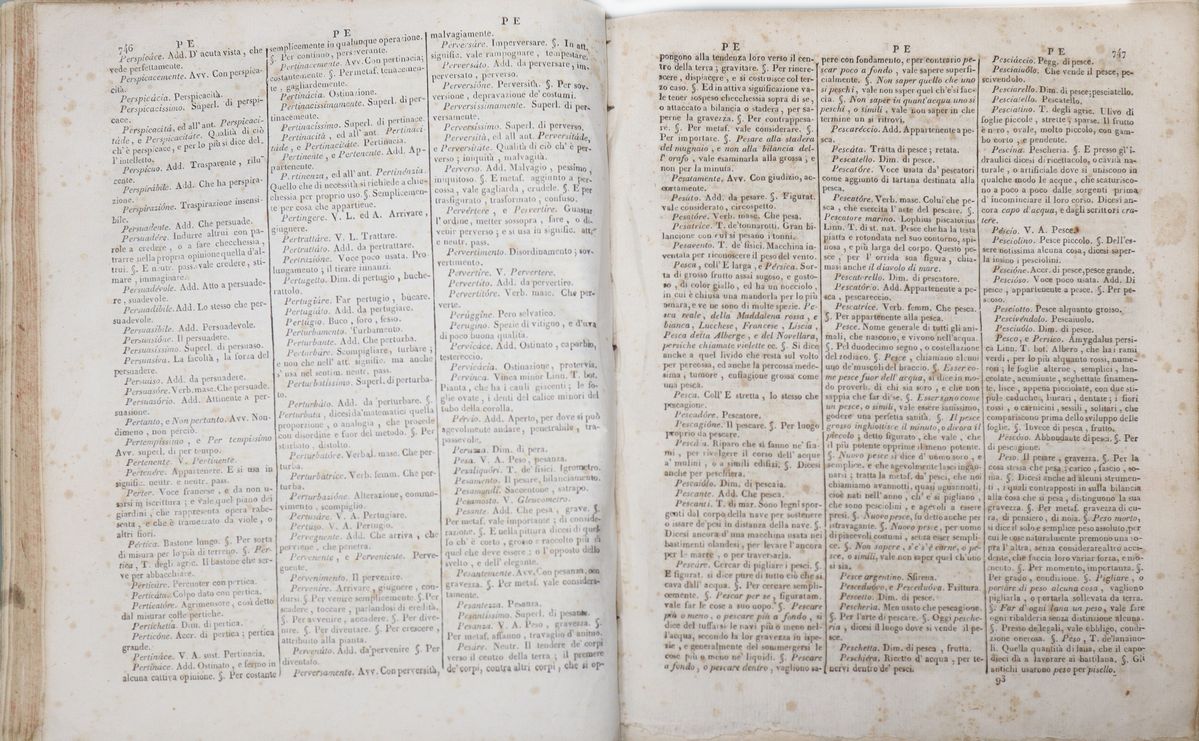 746
P E
Perspicáce. Add. D'acuta vista, che
vede perfettamente.
Perspicacemente. Avv. Con perspica-
cità.
Perspicácia. Perspicacità.
Perspicacissimo. Superl. di perspi-
cace.
Perspicacità, ed all'ant. Perspicaci-
tàde, e Perspicacitate. Qualità di ciò
ch'è perspicace, e per lo più si dice del-
l'intelletto.
Perspicuo. Add. Trasparente, rilu-
cente.
Perspirábile. Add. Che ha perspira-
zione.
Perspirazióne. Traspirazione insensi-
bile.
Persuadente. Add. Che persuade.
Persuadére. Indurre altrui con pa-
role a credere, o a fare checchessia,
trarre nella propria opinione quella d'al-
trui. §. E n. utr. pass. vale credere, sti-
mare, immaginare.
Persuadévole. Add. Atto a persuade-
re, suadevole.
Persuadibile. Add. Lo stesso che per-
suadevole.
Persuasibile. Add. Persuadevole.
Persuasióne. Il persuadere.
Persuasissimo. Superl. di persuaso.
Persuasiva. La facoltà, la forza del
persuadere.
Persuaso. Add. da persuadere.
Persuasóre. Verb. masc. Che persuade.
Persuasório. Add. Attinente a per-
suasione.
Pertanto, e Non pertanto. Avv. Non-
dimeno, non perciò.
Pertempissimo, e Per tempissimo
Avv. superl. di per tempo.
Pertenente. V. Pertinente.
Pertenére. Appartenere. E si usa in
signific. neutr. e neutr. pass.
Perter. Voce franzese, e da non u-
sarsi in iscrittura; e vale quel piano dei
giardini, che rappresenta opera rabe-
scata, e che è tramezzato da viole, o
altri fiori.
Pértica. Bastone lungo. §. Per sorta
di misura per lo più di terreno. §. Pér-
tica, T. degli agric. Il bastone che ser-
ve per abbacchiare.
Perticáre. Percuoter con pertica.
Perticáta. Colpo dato con pertica.
Perticatóre. Agrimensore, così detto
dal misurar colle pertiche.
Pertichetta. Dim. di pertica.
Perticóne. Accr. di pertica; pertica
grande.
Pertináce. V. A. sust. Pertinacia.
Pertináce. Add. Ostinato, e fermo in
alcuna cattiva opinione. §. Per costante
P E
semplicemente in qualunque operazione.
§. Per continuo, perseverante.
Pertinacemente. Avv. Con pertinacia;
costantemente. §. Per metaf. tenacemen-
te, gagliardemente.
Pertinácia. Ostinazione.
Pertinacissimamente. Superl. di per-
tinacemente.
Pertinacissimo. Superl. di pertinace.
Pertinacità, ed all'ant. Pertinaci-
tàde, e Pertinacitate. Pertinacia.
Pertinente, e Pertenente. Add. Ap-
partenente.
Pertinenza, ed all'ant. Pertinénzia.
Quello che di necessità si richiede a chec-
chessia per proprio uso. §. Semplicemen-
te per cosa che appartiene.
Pertingere. V. L. ed A. Arrivare,
giugnere.
Pertrattáre. V. L. Trattare.
Pertrattáto. Add. da pertrattare.
Pertrazióne. Voce poco usata. Pro
lungamento; il tirare innanzi.
Pertugetto. Dim. di pertugio, buche-
rattolo.
Pertugiáre. Far pertugio, bucare.
Pertugiáto. Add. da pertugiare.
Pertúgio. Buco, foro, fesso.
Perturbamento. Turbamento.
Perturbante. Add. Che perturba.
Perturbáre. Scompigliare, turbare;
e non che nell'att. signific. ma anche
s'usa nel sentim. neutr. pass.
Perturbatissimo. Superl. di perturba-
to.
Perturbáto. Add. da perturbare. §.
Perturbata, dicesi da' matematici quella
proporzione, o analogia, che procede
con disordine e fuor del metodo. §. Per
isturbato, distolto.
Perturbatóre. Verbal. masc. Che per-
turba.
Perturbatrice. Verb. femm. Che per-
turba.
Perturbazióne. Alterazione, commo-
vimento, scompiglio.
Pertusáre. V. A. Pertugiare.
Pertuso. V. A. Pertugio.
Pervegnente. Add. Che arriva, che
perviene, che penetra.
Pervenente, e Perveniente. Perve-
gnente.
Pervenimento. Il pervenire.
Pervenire. Arrivare, giugnere, con-
dursi. §. Per venire semplicemente. §. Per
scadere, toccare, parlandosi di eredità.
§. Per avvenire, accadere. §. Per dive-
nire. §. Per diventare. §. Per crescere,
attribuito alla pianta.
Pervenúto. Add. da pervenire. §. Per
diventato.
Perversamente. Avv. Con perversità,
P E
malvagiamente.
Perversáre. Imperversare. §. In att.
signific. vale rampognare, tempestare.
Perversáto. Add. da perversare, im-
perversato, perverso.
Perversióne. Perversità. §. Per sov-
versione, depravazione de' costumi.
Perversissimamente. Superl. di per-
versamente.
Perversissimo. Superl. di perverso.
Perversità, ed all'ant. Perversitáde,
e Perversitate. Qualità di ciò ch'è per-
verso; iniquità, malvagità.
Perverso. Add. Malvagio, pessimo,
iniquitoso. §. E metaf. aggiunto a per-
cossa, vale gagliarda, crudele. §. E per
trasfigurato, trasformato, confuso.
Pervértere, e Pervertire. Guastar
l'ordine, metter sossopra, fare, o di-
venir perverso; e si usa in signific. att.
e neutr. pass.
Pervertimento. Disordinamento; sov-
vertimento.
Pervertire. V. Pervertere.
Pervertito. Add. da pervertire.
Pervertitóre. Verb. masc. Che per-
verte.
Perúggine. Pero selvatico.
Perugino. Spezie di vitigno, e d'uva
di poco buona qualità.
Pervicáce. Add. Ostinato, caparbio,
testereccio.
Pervicácia. Ostinazione, protervia.
Pervinca. Vinca minor Linn. T. bot.
Pianta, che ha i cauli gricenti; le fo-
glie ovate, i denti del calice minori del
tubo della corolla.
Pérvio. Add. Aperto, per dove si può
agevolmente andare, penetrabile, tra-
passevole.
Peruzza. Dim. di pera.
Pesa. V. A. Peso, pesanza.
Pesaliquóri. T. de' fisici. Igrometro.
Pesamento. Il pesare, bilanciamento.
Pesamondi. Saccentone, satrapo.
Pesamosto. V. Gleucometro.
Pesante. Add. Che pesa, grave. §.
Per metaf. vale importante; di conside-
razione. §. E nella pittura dicesi di quel-
lo ch'è corto, grosso e raccolto più di
quel che deve essere; o l'opposto dello
svelto, e dell'elegante.
Pesantemente. Avv. Con pesanza, con
gravezza. §. Per metaf. vale considera-
tamente.
Pesantezza. Pesanza.
Pesantissimo. Superl. di pesante.
Pesanza. V. A. Peso, gravezza. §.
Per metaf. affanno, travaglio d'animo.
Pesáre. Neutr. Il tendere de' corpi
verso il centro della terra; il premere
de' corpi, contra altri corpi, che si op-
P E
pongono alla tendenza loro verso il cen-
tro della terra; gravitare. §. Per rincre-
scere, dispiacere, e si costruisce col ter-
zo caso. §. Ed in attiva significazione va-
le tener sospeso checchessia sopra di se,
o attaccato a bilancia o stadera, per sa-
perne la gravezza. §. Per contrappesa-
re. §. Per metaf. vale considerare. §.
Per importare. §. Pesare alla stadera
del mugnaio, e non alla bilancia del-
l'orafo, vale esaminarla alla grossa, e
non per la minuta.
Pesatamente. Avv. Con giudizio, ac-
cortamente.
Pesáto. Add. da pesare. §. Figurat.
vale considerato, circospetto.
Pesatóre. Verb. masc. Che pesa.
Pesatrice. T. de' tonnarotti. Gran bi-
lancione con cui si pesano i tonni.
Pesavento. T. de' fisici. Macchina in-
ventata per riconoscere il peso del vento.
Pesca, coll'E larga, e Pérsica. Sor-
ta di grosso frutto assai sugoso, e gusto-
so, di color giallo, ed ha un nocciolo,
in cui è chiusa una mandorla per lo più
amara, e ve ne sono di molte spezie. Pe-
sca reale, della Maddalena rossa, e
bianca, Lucchese, Francese, Liscia,
Pesca della Alberge, e del Novellara,
persiche chiamate violette ec. §. Si dice
anche a quel livido che resta sul volto
per percossa, ed anche la percossa mede-
sima; tumore, enfiagione grossa come
una pesca.
Pesca. Coll'E stretta, lo stesso che
pescagione.
Pescadóre. Pescatore.
Pescagióne. Il pescare. §. Per luogo
proprio da pescare.
Pescáia. Riparo che si fanno ne' fiu-
mi, per rivolgere il corso dell'acque
a' mulini, o a simili edifizi. §. Dicesi
anche per peschiera.
Pescaióla. Dim. di pescaia.
Pescante. Add. Che pesca.
Pescanti. T. di mar. Sono legni spor-
genti dal corpo della nave per sostenere
o issare de' pesi in distanza della nave. §.
Dicesi ancora d'una macchina usata nei
bastimenti olandesi, per levare l'ancora
per le marre, o per traversarla.
Pescáre. Cercar di pigliare i pesci. §.
E figurat. si dice pure di tutto ciò che si
cava dall'acqua. §. Per cercare sempli-
cemente. §. Pescar per se, figuratam.
vale far le cose a suo uopo. §. Pescare
più o meno, o pescare più a fondo, si
dice del tuffarsi le navi più o meno nel-
l'acqua, secondo la lor gravezza in ispe-
zie, e generalmente del sommergersi le
cose più o meno ne' liquidi. §. Pescare
a fondo, o pescare dentro, vagliono sa-
P E
pere con fondamento, e per contrario pe-
scar poco a fondo, vale sapere superfi-
cialmente. §. Non saper quello che uno
si peschi, vale non saper quel ch'e' si fac-
cia. §. Non saper in quant'acqua uno si
peschi, o simili, vale non saper in che
termine un si ritrovi.
Pescaréccio. Add. Appartenente a pe-
sca.
Pescáta. Tratta di pesce; retata.
Pescatello. Dim. di pesce.
Pescatore. Voce usata da' pescatori
come aggiunto di tartana destinata alla
pesca.
Pescatóre. Verb. masc. Colui che pe-
sca, che esercita l'arte del pescare. §.
Pescatore marino. Lophius piscatorius
Linn. T. di st. nat. Pesce che ha la testa
piatta e rotondata nel suo contorno, spi-
nosa, e più larga del corpo. Questo pe-
sce, per l'orrida sua figura, chia-
masi anche il diavolo di mare.
Pescatorello. Dim. di pescatore.
Pescatório. Add. Appartenente a pe-
sca, pescareccio.
Pescatrice. Verb. femm. Che pesca.
§. Per appartenente alla pesca.
Pesce. Nome generale di tutti gli ani-
mali, che nascono, e vivono nell'acqua.
§. Pel duodecimo segno, o costellazione
del zodiaco. §. Pesce, chiamano alcuni
uno de' muscoli del braccio. §. Esser co-
me pesce fuor dell'acqua, si dice in mo-
do proverb. di chi sia soro, e che non
sappia che far di se. §. Esser sano come
un pesce, o simili, vale essere sanissimo,
godere una perfetta sanità. §. Il pesce
grosso inghiottisce il minuto, o divora il
piccolo; detto figurato, che vale, che
il più potente opprime il meno potente.
§. Nuovo pesce si dice d'uomo soro, e
semplice, e che agevolmente lasci ingan-
narsi; tratta la metaf. da' pesci, che noi
chiamiamo avannotti, quasi ugnannotti,
cioè nati nell'anno, ch'e' si pigliano,
che sono pesciolini, e agevoli a essere
presi. §. Nuovo pesce, fu detto anche per
istravagante. §. Nuovo pesce, per uomo
di piacevoli costumi, senza esser sempli-
ce. §. Non sapere, s'e' s'è carne, o pe-
sce, o simili, vale non saper quel ch'uno
si sia.
Pesce argentino. Sfirena.
Pesceduovo, e Pesceduova. Frittura.
Pescetto. Dim. di pesce.
Pescheria. Men usato che pescagione.
§. Per l'arte di pescare. §. Oggi pesche-
ria, dicesi il luogo dove si vende il pe-
sce.
Peschetta. Dim. di pesca, frutta.
Peschiéra. Ricetto d'acqua, per te-
nervi dentro de' pesci.
P E
747
Pesciáccio. Pegg. di pesce.
Pesciaiuólo. Che vende il pesce, pe-
scivendolo.
Pesciarello. Dim. di pesce; pesciatello.
Pesciatello. Pescatello.
Pesciatino. T. degli agric. Ulivo di
foglie piccole, strette, sparse. Il frutto
è nero, ovale, molto piccolo, con gam-
bo corto, e pendente.
Pescina. Pescheria. §. E presso gl'i-
draulici dicesi di ricettacolo, o cavità na-
turale, o artificiale dove si uniscono in
qualche modo le acque, che scaturisco-
no a poco a poco dalle sorgenti prima
d'incominciare il loro corso. Dicesi an-
cora capo d'acqua, e dagli scrittori cra-
tere.
Péscio. V. A. Pesce.
Pesciolino. Pesce piccolo. §. Dell'es-
sere netissima alcuna cosa, dicesi saper-
la insino i pesciolini.
Pescióne. Accr. di pesce, pesce grande.
Pescióso. Voce poco usata. Add. Di
pesce, appartenente a pesce. §. Per pe-
scoso.
Pesciotto. Pesce alquanto grosso.
Pescivéndolo. Pesciaiuolo.
Pesciuólo. Dim. di pesce.
Pesco, e Pérsico. Amygdalus persi-
ca Linn. T. bot. Albero, che ha i rami
verdi, per lo più alquanto rossi, nume-
rosi; le foglie alterne, semplici, lan-
ceolate, acuminate, seghettate finamen-
te, lisce, appena picciolate, con due sti-
pule caduche, lineari, dentate; i fiori
rossi, o carnicini, sessili, solitari, che
compariscono prima dello sviluppo delle
foglie. §. Invece di pesca, frutto.
Pescóso. Abbondante di pesci. §. Per
di pescagione.
Peso. Il pesare, gravezza. §. Per la
cosa stessa che pesa; carico, fascio, so-
ma. §. Dicesi anche ad alcuni strumen-
ti, i quali contrapposti in sulla bilancia
alla cosa che si pesa, distinguono la sua
gravezza. §. Per metaf. gravezza di cu-
ra, di pensiero, di noia. §. Peso morto,
si dice il solo e semplice peso assoluto, per
cui le cose naturalmente premono una so-
pra l'altra, senza considerare altro acci-
dente, che faccia loro variar forza, e mo-
mento. §. Per momento, importanza. §.
Per grado, condizione. §. Pigliare, o
portare di peso alcuna cosa, vagliono
pigliarla, o portarla sollevata da terra.
§. Far d'ogni lana un peso, vale fare
ogni ribalderia senza distinzione alcuna.
§. Presso de' legali, vale obbligo, condi-
zione onerosa. §. Peso, T. de' lanaiuo-
li. Quella quantità di lana, che il capo-
dieci dà a lavorare ai battilana. §. Gli
antichi usarono peso per pisello.
93